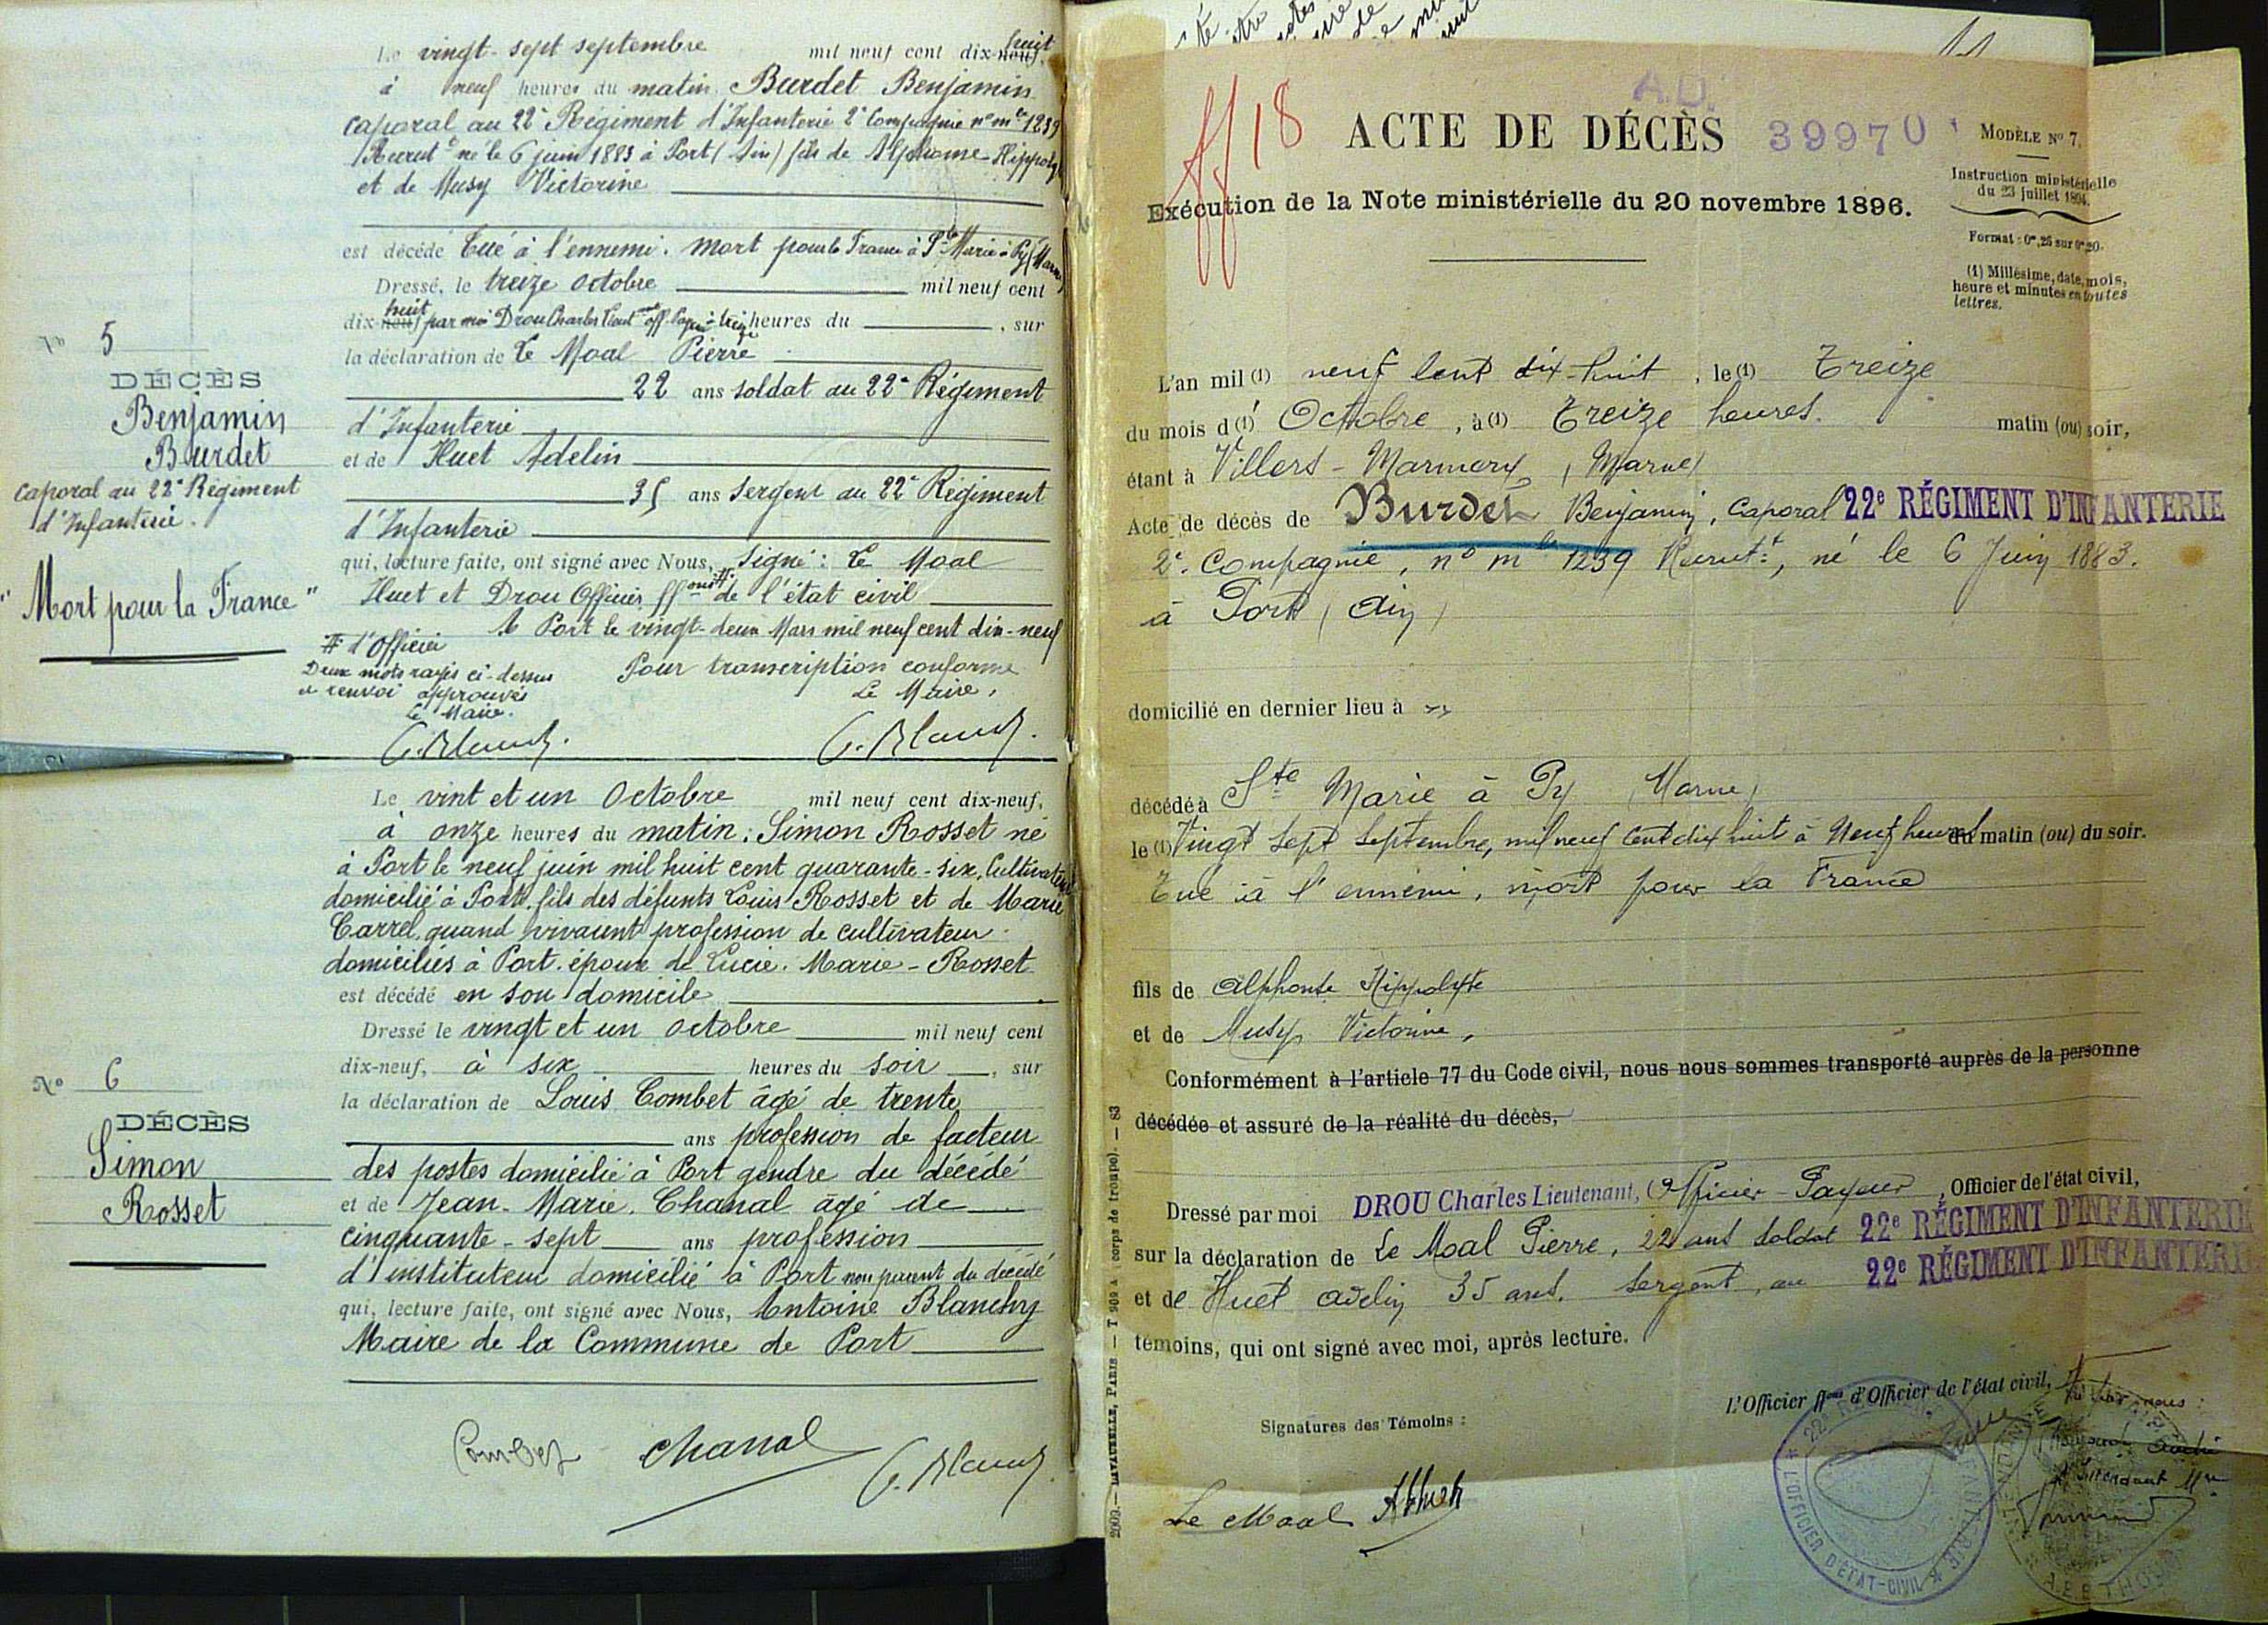 Le vingt-sept septembre mil neuf cent dix-neuf huit
à neuf heures du matin Burdet Benjamin
Caporal au 22e Régiment d'Infanterie 2e Compagnie n° mle 1239
Recrutt né le 6 juin 1883 à Port (Ain) fils de Alphonse-Hippolyte
et de Musy Victorine
est décédé Tué à l'ennemi. mort pour la France à Ste Marie à Py (Marne)
Dressé, le treize Octobre mil neuf cent
dix-neuf huit par moi Drou Charles Lieutnant off. Payeur à treize heures du , sur
la déclaration de Le Moal Pierre
22 ans soldat au 22e Régiment
d'Infanterie
et de Huet Adelin
35 ans Sergent au 22e Régiment
d'Infanterie
qui, lecture faite, ont signé avec Nous, Signé : Le Moal
Huet et Drou Officier ffons # de l'état civil
A Port le vingt-deux Mars mil neuf cent dix-neuf
Pour transcription conforme
Le Maire,
G. Blanchy
# d'Officier
Deux mots rayés ci-dessus
et renvoi approuvés
Le Maire.
G. Blanchy.
N° 5
DÉCÈS
Benjamin
Burdet
Caporal au 22e Régiment
d'Infanterie.
"Mort pour la France"
Le vint et un Octobre mil neuf cent dix-neuf,
à onze heures du matin : Simon Rosset né
à Port le neuf juin mil huit cent quarante-six, Cultivateur
domicilié à Port. fils des défunts Louis Rosset et de Marie
Carrel, quand vivaient profession de cultivateur
domiciliés à Port. époux de Lucie. Marie-Rosset
est décédé en son domicile
Dressé le vingt et un octobre mil neuf cent
dix-neuf, à six heures du soir , sur
la déclaration de Louis Combet âgé de trente
ans profession de facteur
des postes domicilié à Port gendre du décédé
et de Jean-Marie. Chanal âgé de
cinquante-sept ans profession
d'instituteur domicilié à Port non parent du décédé
qui, lecture faite, ont signé avec Nous, Antoine Blanchy
Maire de la Commune de Port
Combet Chanal G. Blanchy
N° 6
DÉCÈS
Simon
Rosset
A.D.
18
ACTE DE DÉCÈS 39970
MODÈLE N° 7.
Instruction ministérielle
du 23 juillet 1894.
Format : 0m,26 sur 0m,20.
(1) Millésime, date, mois,
heure et minutes en toutes
lettres.
Exécution de la Note ministérielle du 20 novembre 1896.
L'an mil (1) neuf Cent dix-huit , le (1) Treize
du mois d (1) Octobre , à (1) Treize heures. matin (ou) soir,
étant à Villers-Marmery (Marne)
Acte de décès de Burdet Benjamin, Caporal 22e RÉGIMENT D'INFANTERIE
2e Compagnie, n° mle 1239 Recrutt, né le 6 Juin 1883.
à Port (Ain)
domicilié en dernier lieu à "
décédé à Ste Marie à Py (Marne)
le (1) Vingt Sept Septembre, mil neuf Cent dix huit à Neuf heures du matin (ou) du soir.
Tué à l'ennemi, mort pour la France
fils de Alphonse Hippolyte
et de Musy Victorine,
Conformément à l'article 77 du Code civil, nous nous sommes transporté auprès de la personne
décédée et assuré de la réalité du décès,
Dressé par moi DROU Charles Lieutenant, Officier-Payeur , Officier de l'état civil,
sur la déclaration de Le Moal Pierre, 22 ans soldat 22e RÉGIMENT D'INFANTERIE
et de Huet Adelin 35 ans. Sergent, au 22e RÉGIMENT D'INFANTERIE
témoins, qui ont signé avec moi, après lecture.
L'Officier ffons d'Officier de l'état civil,
Signatures des Témoins :
Le Moal AHuet
Vu par nous :
22e RÉGIMENT D'INFANTERIE * L'OFFICIER D'ÉTAT-CIVIL *
2009. — LAVAUZELLE, PARIS — T 909 A (corps de troupe). — 83